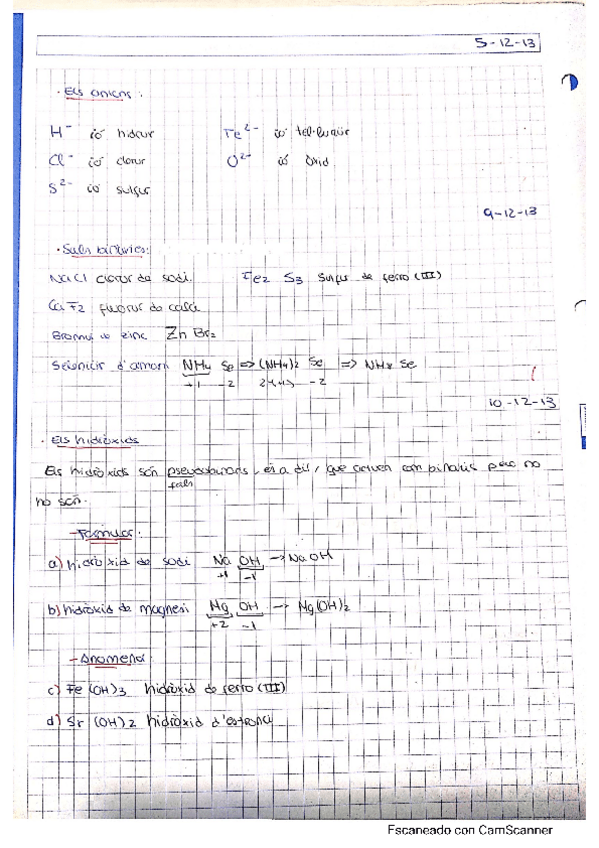 5-12-13
· Els anions:
H⁻ ió hidrur Te²⁻ ió tel·lurur
Cl⁻ ió clorur O²⁻ ió òxid
S²⁻ ió sulfur
9-12-13
· Sals binàries:
NaCl clorur de sodi. Fe2 S3 sulfur de ferro (III)
Ca F2 fluorur de calci
Bromur de zinc Zn Br₂
Seleniur d'amoni NH4 Se => (NH4)2 Se =>
+1 -2 -2
10-12-13
· Els hidròxids
Els hidròxids són pseudobinaris, és a dir, que actuen com binaris però no
fals
ho són.
- Formular:
a) hidròxid de sodi Na OH → NaOH
+1 -1
b) hidròxid de magnesi Mg OH → Mg(OH)2
+2 -1
- Anomenar:
c) Fe (OH)3 hidròxid de ferro (III)
d) Sr (OH)2 hidròxid d'estronci
Escaneado con CamScanner